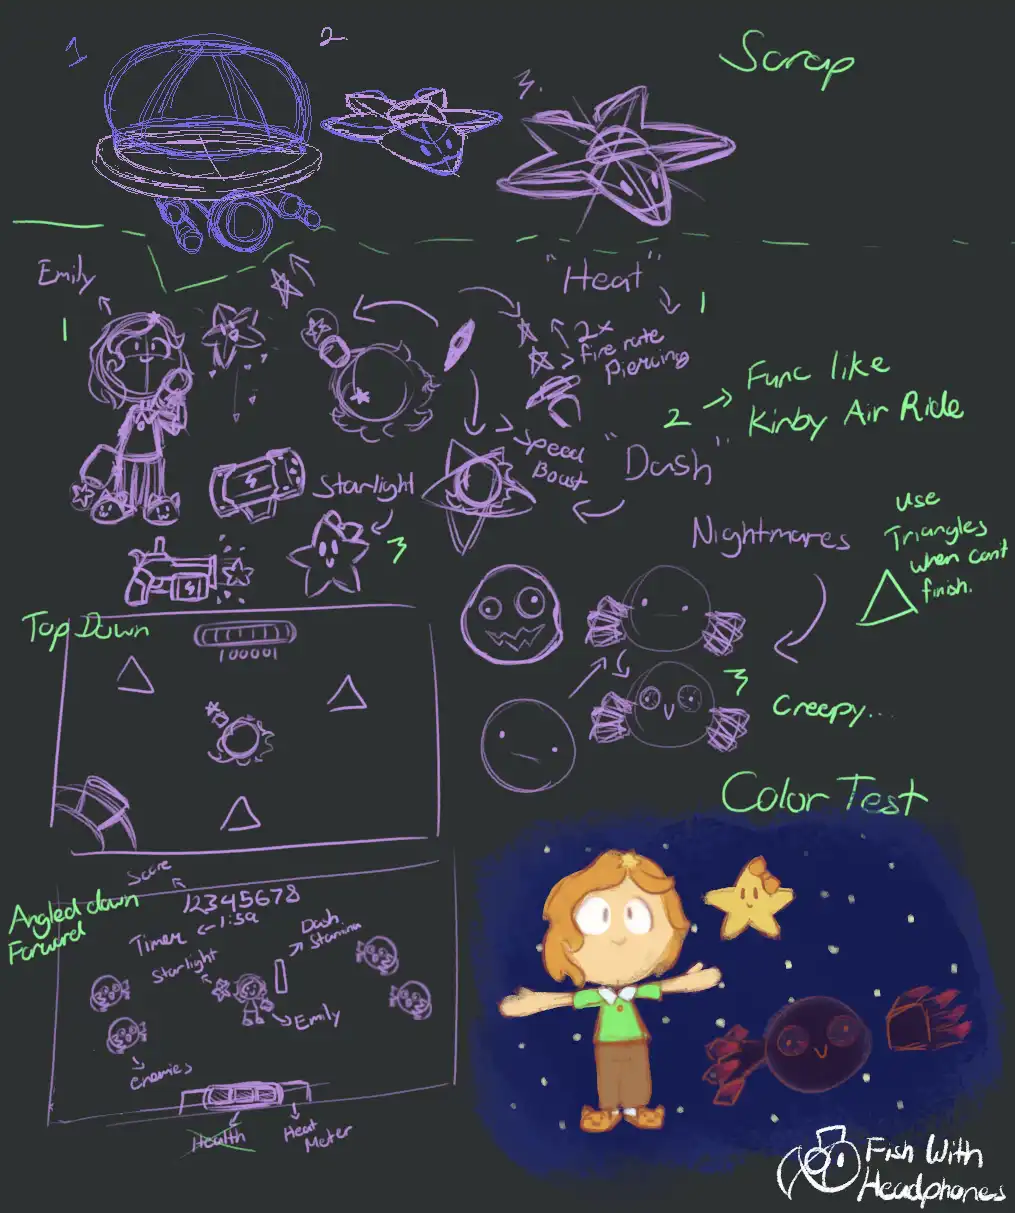 1
2.
3.
Scrap
Emily
1
"Heat"
1
2x
Fire rate
Piercing
2
Func like
Kirby Air Ride
Speed
Boost
"Dash"
Starlight
3
Nightmares
use
Triangles
when can't
finish.
Top Down
100001
3
Creepy...
Color Test
Score
12345678
Angled down
Forward
Timer
1:59
Dash
Stamina
Starlight
Emily
enemies
Health
Heat
Meter
Fish With
Headphones